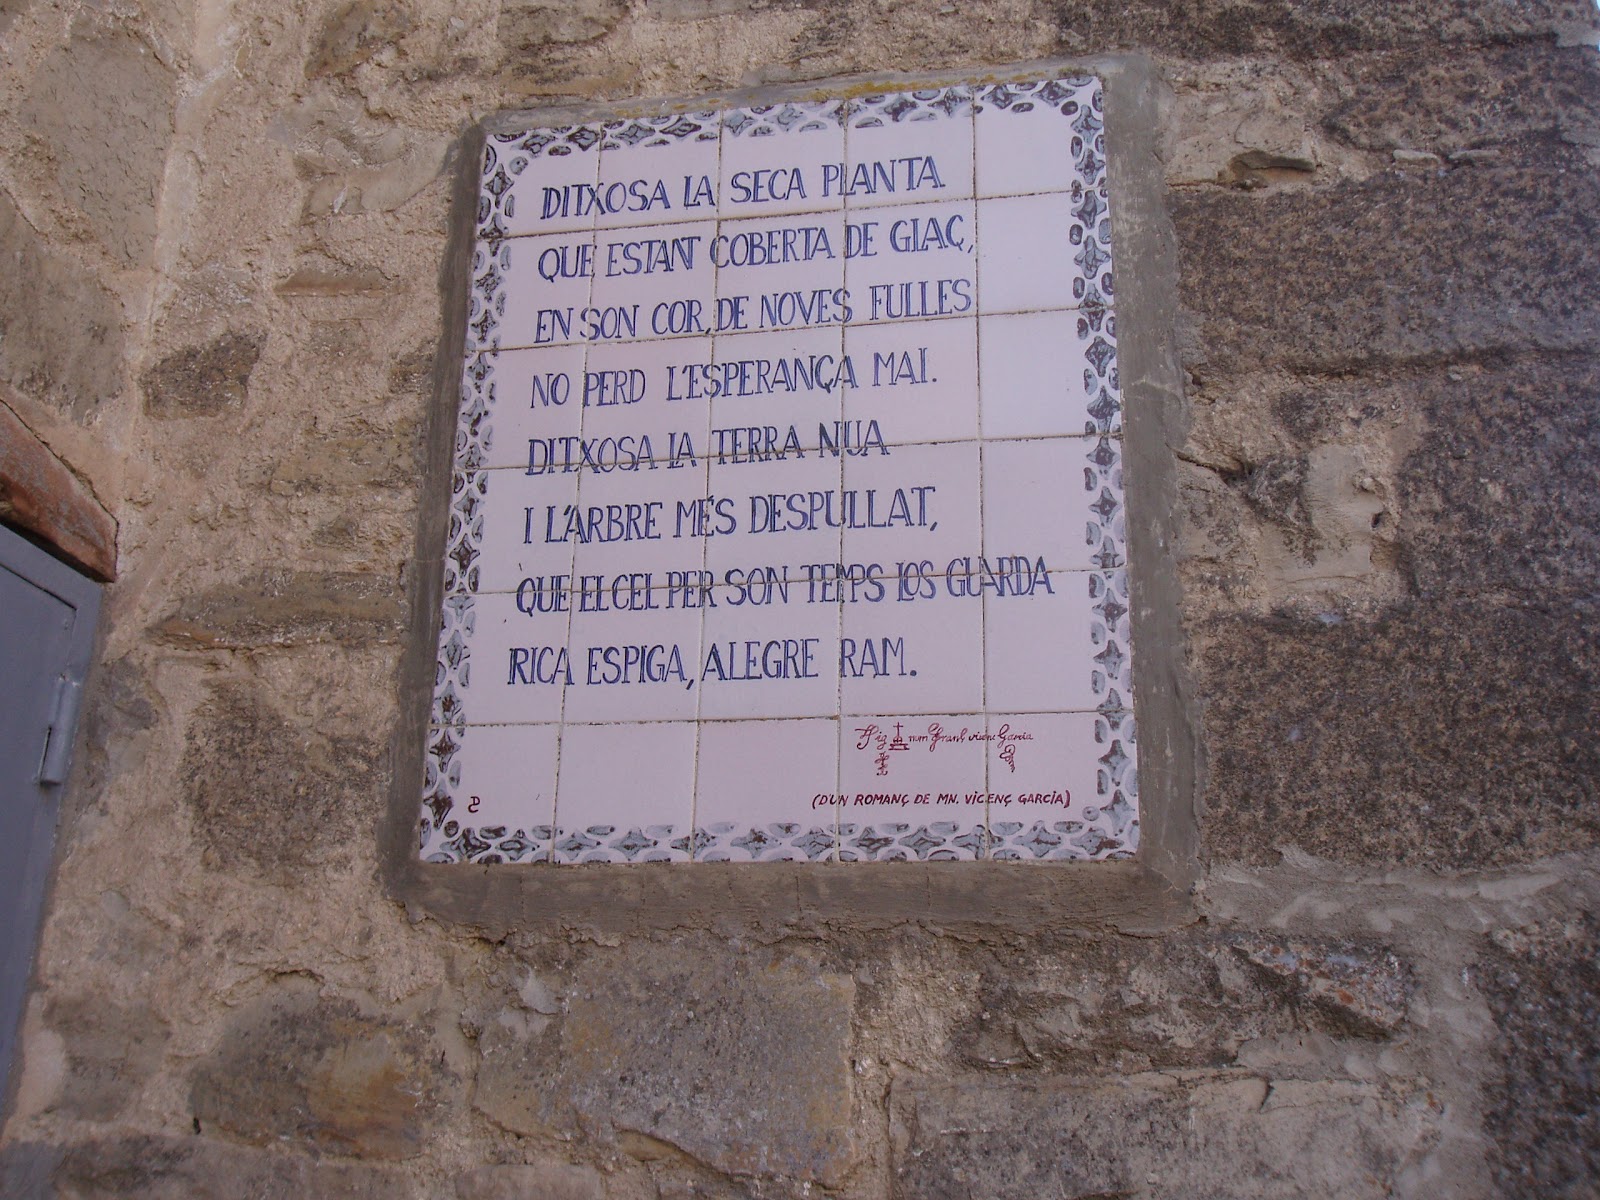 DITXOSA LA SECA PLANTA
QUE ESTANT COBERTA DE GLAÇ,
EN SON COR, DE NOVES FULLES
NO PERD L'ESPERANÇA MAI.
DITXOSA LA TERRA NUA
I L'ARBRE MÉS DESPULLAT,
QUE EL CEL PER SON TEMPS LOS GUARDA
RICA ESPIGA, ALEGRE RAM.
(D'UN ROMANÇ DE MN. VICENÇ GARCIA)